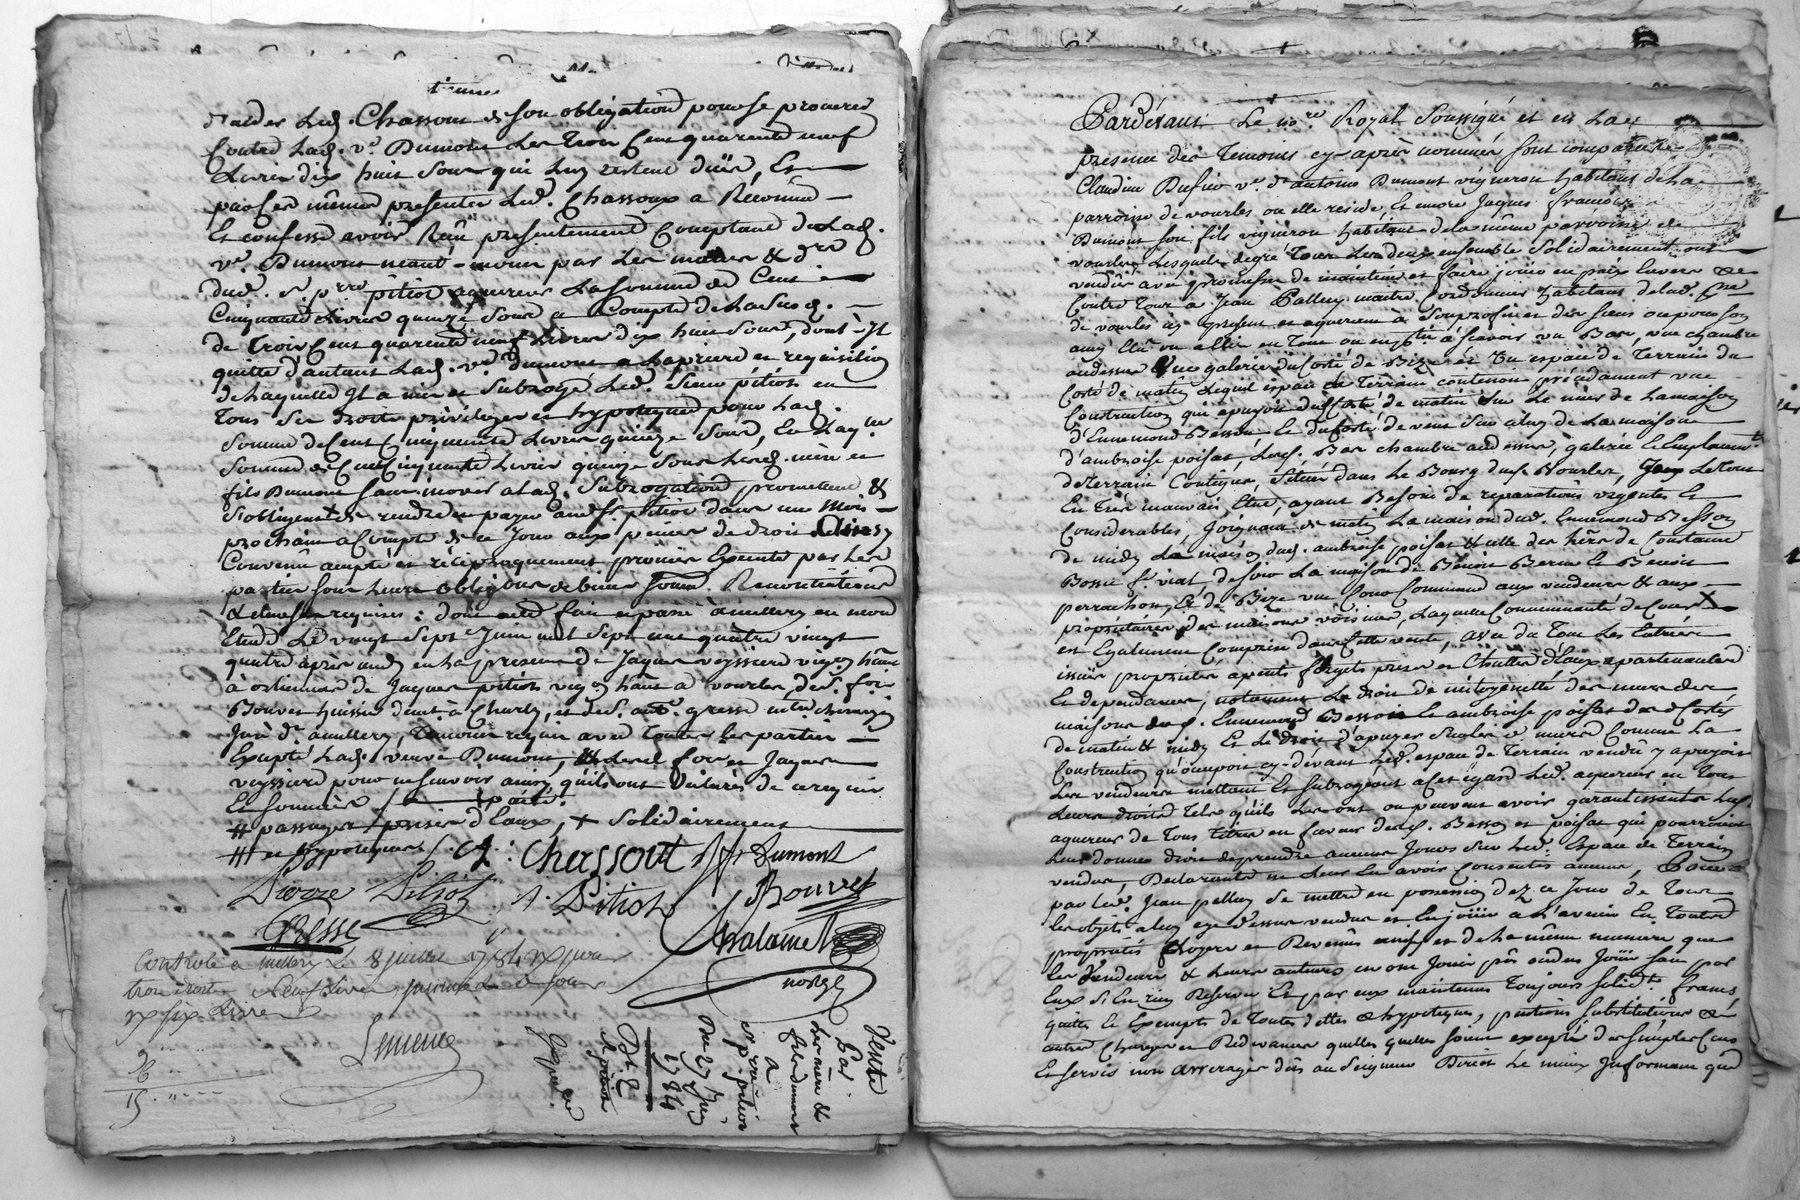 d'aider Led. Chassout de son obligation pour se procurer
Contre Lad. ve. Dumont Les Trois Cent quarente neuf
Livres dix huit sour qui Luy restent düe, Et
par ces mêmes presentes Led. Chassout a Reconnu
Et confessé avoir Reçu presentement Comptant de Lad.
ve. Dumont neant-moins par Les mains & drs
dud. sr pitiot aquereur La somme de Cent
Cinquante Livres quinze Sour a Compte de La Susd.
de Trois Cent quarente neuf Livres dix huit Sour, dont Jl
quitte d'autant Lad. ve. dumont a La priere et requisition
de Laquelle Jl a mis et Subrogé Led. Sieur pitiot en
Tous Ses droits privileges et hypoteques pour Lad.
Somme de Cent Cinquante Livres quinze Sour, Et Laqlle
Somme de Cent Cinquante Livres quinze Sour Lesd. mère et
fils Dumont sans inover a Lad. Subrogation promettent &
s'obligent de rendre et payer aud. Sr. pitiot dans un mois
prochain a Compte de ce Jour aux peines de droit. Ainsy
Convenu accepté et réciproquement promis Executé par Les
parties sous Leurs obligations de biens Soum. Renontiations
& clauses requises: dont acte fait et passé à millery en mon
Etude Le vingt Sept Juin mil Sept cent quatre vingt
quatre après midy en La presence de Jaques veyssiere vigon hant
à orlienas de Jaques pitiot vigon hant a vourles, de Sr. foi
Bouvet huissier demt. à Charly, et de S. ant. gresse mtre chirurgien
Juré dt. a millery, Temoins requis avec Toutes les parties
Excepté Lad. veuve Dumont, & Jaques
veyssiere pour ne sçavoir ainsy qu'ils ont déclarés de ce requis
Et Sommés
# passages prises d'Eaux, + Solidairement
et hypoteques
Chassout Dumont
Pitiot A. Pitiot Bouvet
Gresse
Chalamel
nore
Controlé a millery Le 8 juillet 1784 Reçu
neuf Livres
six Livres
Vente
par
Les mere &
fils dumont
a
sr pre. pitiot
Du 27 Juin
1784
Expediée
Pardevant Le nore Royal Soussigné et en La
presence des Temoins cy-après nommés sont comparus
Claudine Dufieu ve. d'antoine Dumont vigneron habitant de La
parroisse de vourles ou elle reside, Et encore Jaques françois
Dumont son fils vigneron habitant de La même parroisse de
vourles, Lesquels de gré Tous Les deux ensemble Solidairement ont
vendu avec promesse de maintenir et faire jouir en paix Envers &
Contre Tous a Jean Pelluy maitre Cordonnier habitant de Lad. psse
de vourles icy present et aquereur à Son profit et des siens ou pour son
amy Elu ou a Elire en Tout ou en ptie à sçavoir un Bas, une chambre
audessus, une galerie du Coté de Bize et Un espace de Terrain du
Coté de matin Lequel espace de Terrain contenoit précédament une
Construction qui apuyoit du Coté de matin Sur Le mur de La maison
d'Ennemond Besson Et du Coté de vent Sur celuy de La maison
d'ambroise poisat, Lesd. Bas chambre audessus, galerie & Emplacemt
de terrain Contigus, situés dans Le Bourg dud. Vourles, Le Tout
En Très mauvais Etat, ayant Besoin de réparations urgentes Et
Considerables, Joignant de matin La maison dud. Ennemond Besson
de midy La maison dud. ambroise poisat & celle des hers de Constance
Bossu de soir La maison de Benoit Bernin et Benoit
perrachon, Et de Bize une Cour Commune aux vendeurs & aux
propriétaires des maisons voisines, Laquelle Communauté de Cour
est Egalement Comprise dans Cette vente, avec du Tout Les Entrées
issuës proprietés apents Forgets prises et Chuttes d'Eaux apartenances
Et dependances, notament Le droit de mitoyenneté des murs des
maisons desd. Ennemond Besson Et ambroise poisat des Cotés
de matin & midy Et Le droit d'apuyer Sur Lesd. murs Comme La
Construction qu'occupoit cy-devant Led. espace de Terrain vendu y apuyoit
Les vendeurs mettant Et subrogeant a Cet égard Led. aquereur en Tous
Leurs droits Tels qu'ils Les ont ou peuvent avoir garantissants Led.
aquereur de Tous titres en faveur desd. Besson et poisat qui pourroient
Leur donner droit de prendre aucuns Jours Sur Led. Espace de Terrain
vendu, Déclarants ne Leur En avoir Consentis aucuns, Pour
par Led. Jean pelluy Se mettre en possession dez ce Jour de Tous
Les objets a Luy cy-dessus vendus et En jouir a L'avenir En Toute
proprieté Loyers et Revenus ainsi et de La même maniere que
Les Vendeurs & Leurs auteurs en ont Joüi pû ou dus Jouir sans par
Eux Et En rien Reserver Et par eux maintenus Toujours solidt. francs
quittes & Exempts de Toutes dettes & hypoteques, pentions Substitutions &
autres Charges et Redevances quelles quelles soient excepté des simples Cens
Et servis non arreragés dûs au Seigneur Direct Le mieux Jnformant que